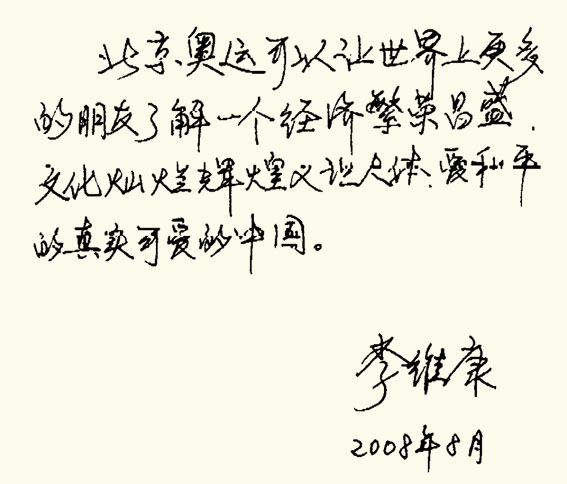 北京奥运可以让世界上更多
的朋友了解一个经济繁荣昌盛、
文化灿烂辉煌又识大体、爱和平
的真实可爱的中国。
李维康
2008年8月